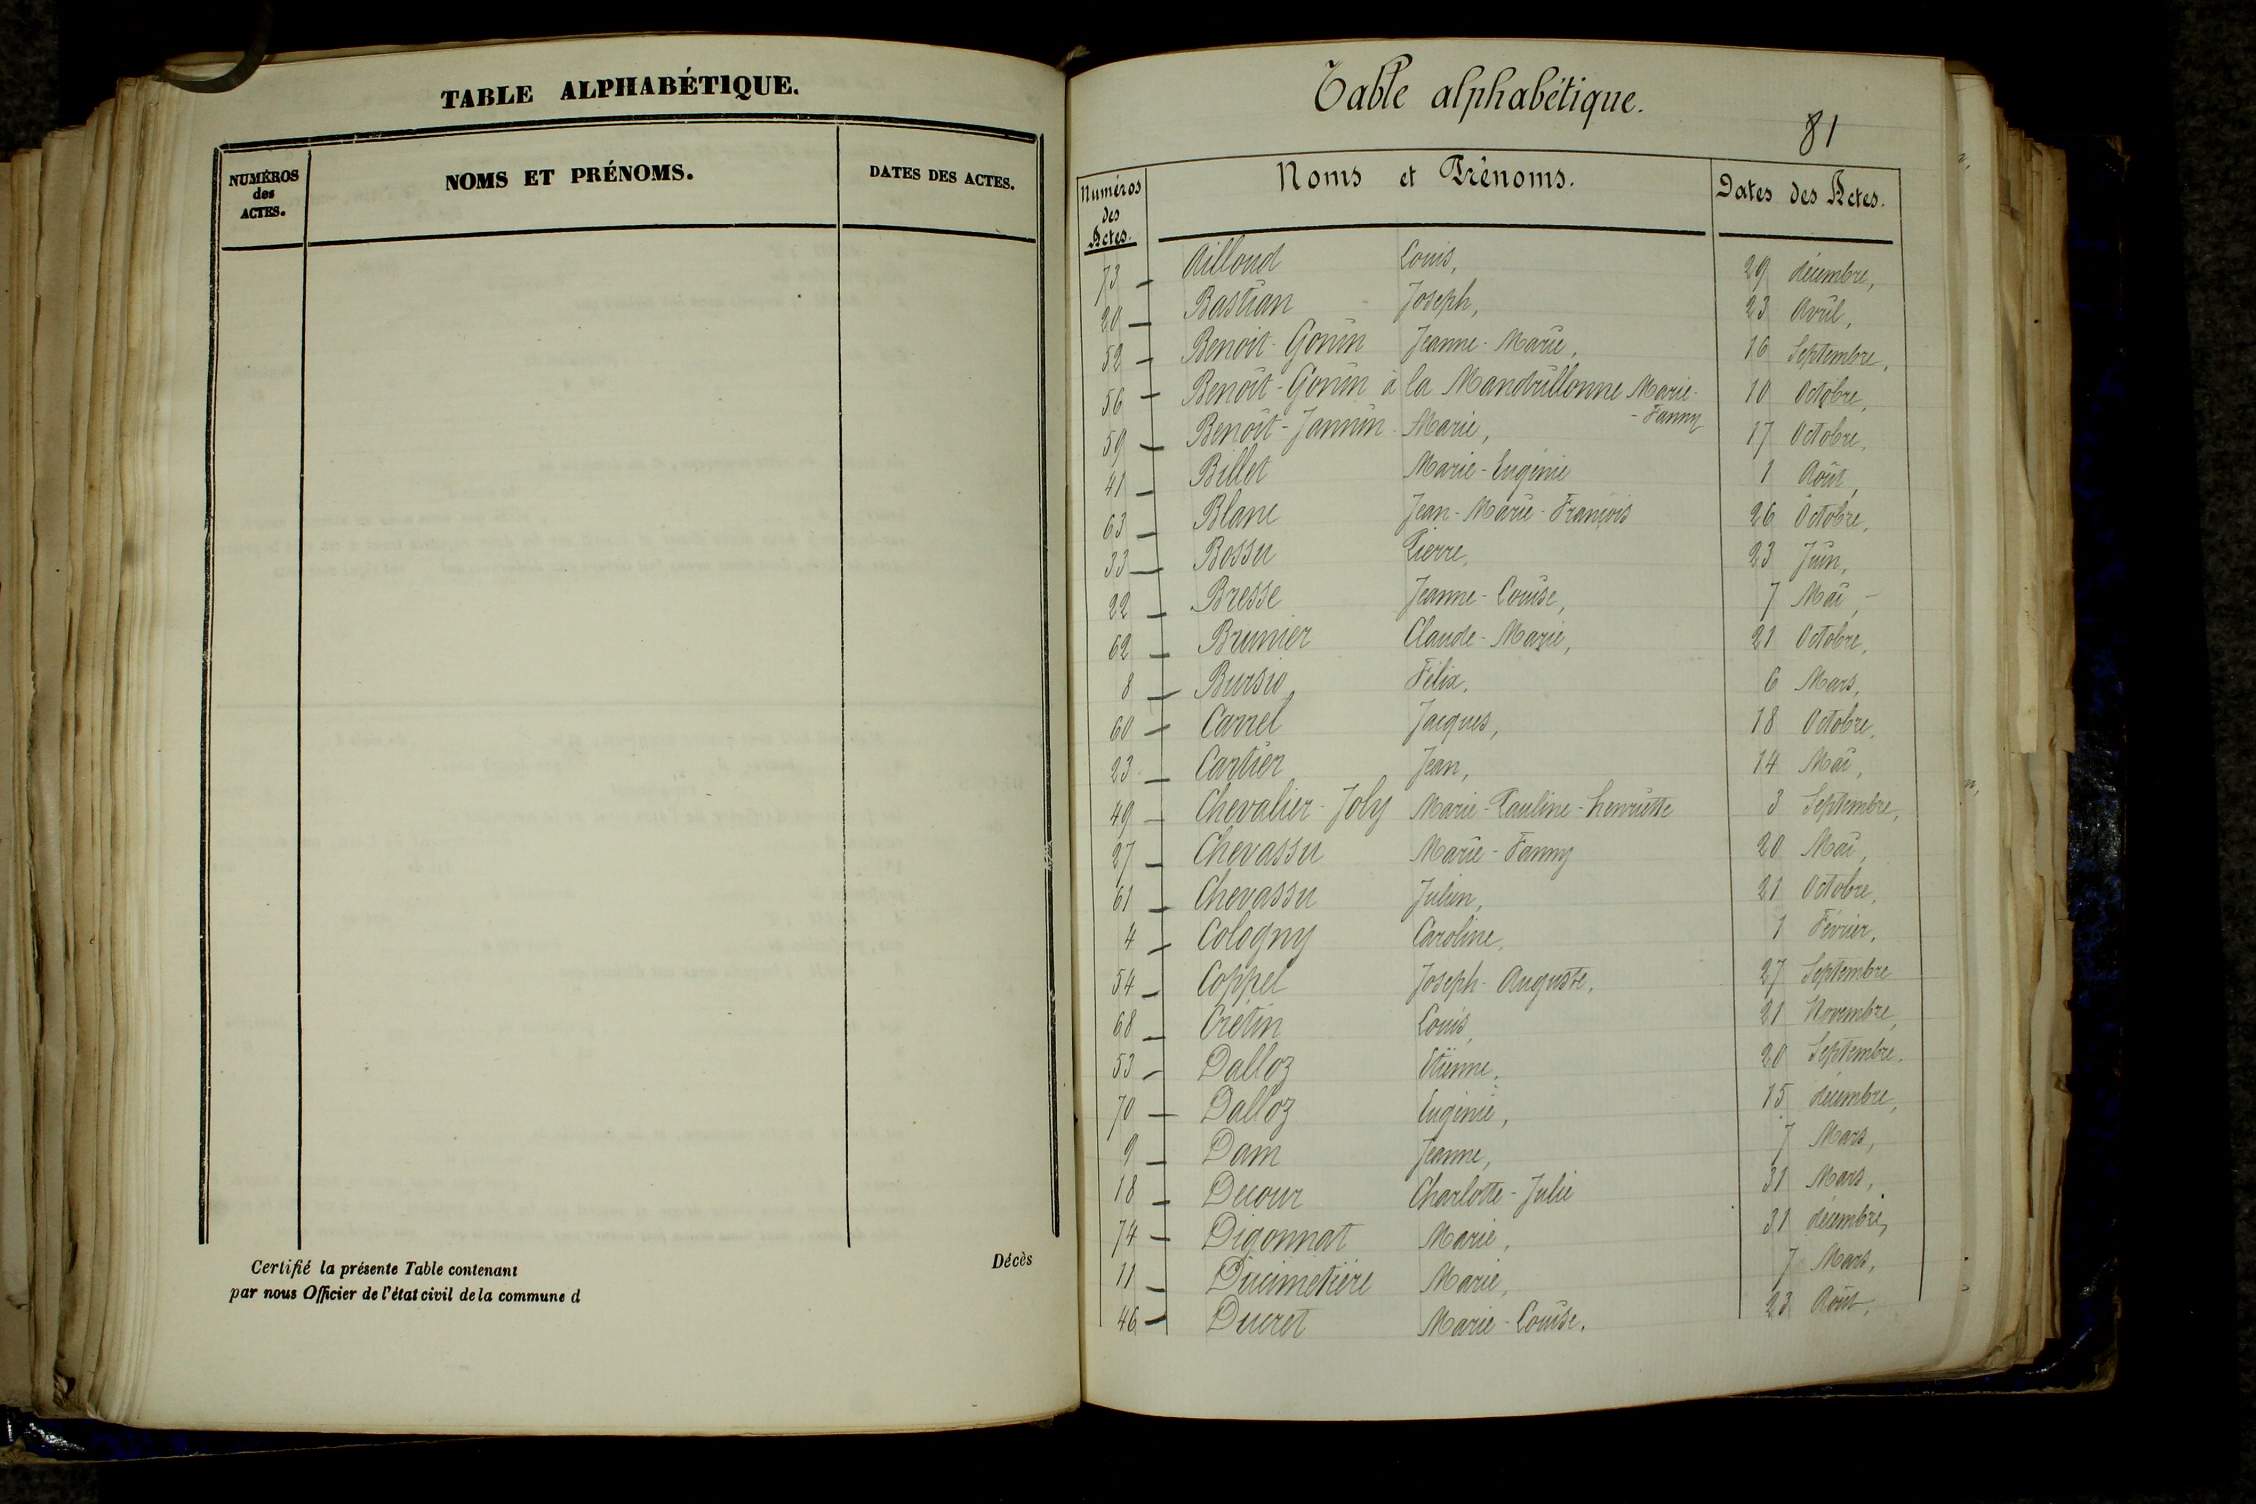 TABLE ALPHABÉTIQUE.
NUMÉROS
des
ACTES.
NOMS ET PRÉNOMS.
DATES DES ACTES.
Certifié la présente Table contenant Décès
par nous Officier de l'état civil de la commune d
Table alphabétique.
81
Numéros
des
Actes.
Noms et Prénoms.
Dates des Actes.
73 — Ailloud Louis, 29 décembre,
20 — Bastian Joseph, 23 Avril,
52 — Benoit-Gonin Jeanne-Marie, 16 Septembre,
56 — Benoît-Gonin à la Mandrillonne Marie- 10 Octobre,
-Fanny
59 — Benoît-Jannin Marie, 17 Octobre,
41 — Billet Marie-Eugénie 1 Août,
63 — Blanc Jean-Marie-François 26 Octobre,
33 — Bossu Pierre, 23 Juin,
22 — Bresse Jeanne-Louise, 7 Mai,-
62 — Brunier Claude-Marie, 21 Octobre,
8 — Bursio Félix. 6 Mars,
60 — Carrel Jacques, 18 Octobre,
23 — Cartier Jean, 14 Mai,
49 — Chevalier-Joly Marie-Pauline-henriette 3 Septembre,
27 — Chevassu Marie-Fanny 20 Mai,
61 — Chevassu Julien, 21 Octobre,
4 — Cologny Caroline, 1 Février,
54 — Coppel Joseph-Auguste, 27 Septembre
68 — Crétin Louis, 21 Novembre,
53 — Dalloz Etienne, 20 Septembre.
70 — Dalloz Eugénie, 15 décembre,
9 — Dam Jeanne, 7 Mars,
18 — Decour Charlotte-Julie 31 Mars,
74 — Digonnat Marie, 31 décembre,
11 — Ducimetière Marie, 7 Mars,
46 — Ducret Marie-Louise. 23 Août,